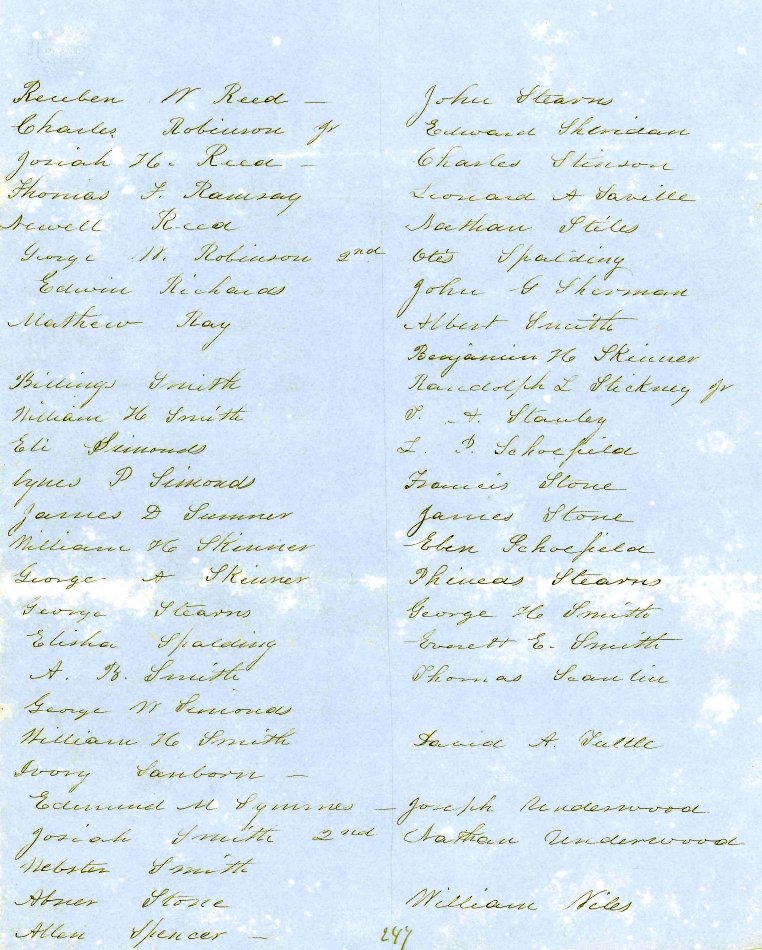 Reuben W Reed —
Charles Robinson jr
Josiah H. Reed —
Thomas F. Ramsay
Newell Reed
George W. Robinson 2nd
Edwin Richards
Mathew Ray
Billings Smith
William H Smith
Eli Simonds
Cyrus P Simonds
James D Sumner
William H Skinner
George A Skinner
George Stearns
Elisha Spalding
A. B. Smith
George W Simonds
William H Smith
Ivory Sanborn —
Edmund M Symmes —
Josiah Smith 2nd
Webster Smith
Abner Stone
Allen Spencer —
John Stearns
Edward Sheridan
Charles Stinson
Leonard A Saville
Nathan Stiles
Otis Spalding
John G Sherman
Albert Smith
Benjamin H Skinner
Randolph L Stickney jr
A. Stanley
L. P. Schoefield
Francis Stone
James Stone
Eben Schoefield
Phineas Stearns
George H Smith
Everett E. Smith
Thomas Scanlin
David A. Tuttle
Joseph Underwood
Nathan Underwood
William Viles
247